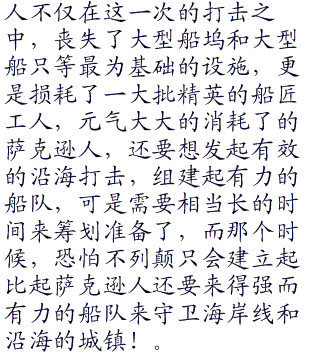 人不仅在这一次的打击之
中，丧失了大型船坞和大型
船只等最为基础的设施，更
是损耗了一大批精英的船匠
工人，元气大大的消耗了的
萨克逊人，还要想发起有效
的沿海打击，组建起有力的
船队，可是需要相当长的时
间来筹划准备了，而那个时
候，恐怕不列颠只会建立起
比起萨克逊人还要来得强而
有力的船队来守卫海岸线和
沿海的城镇！。